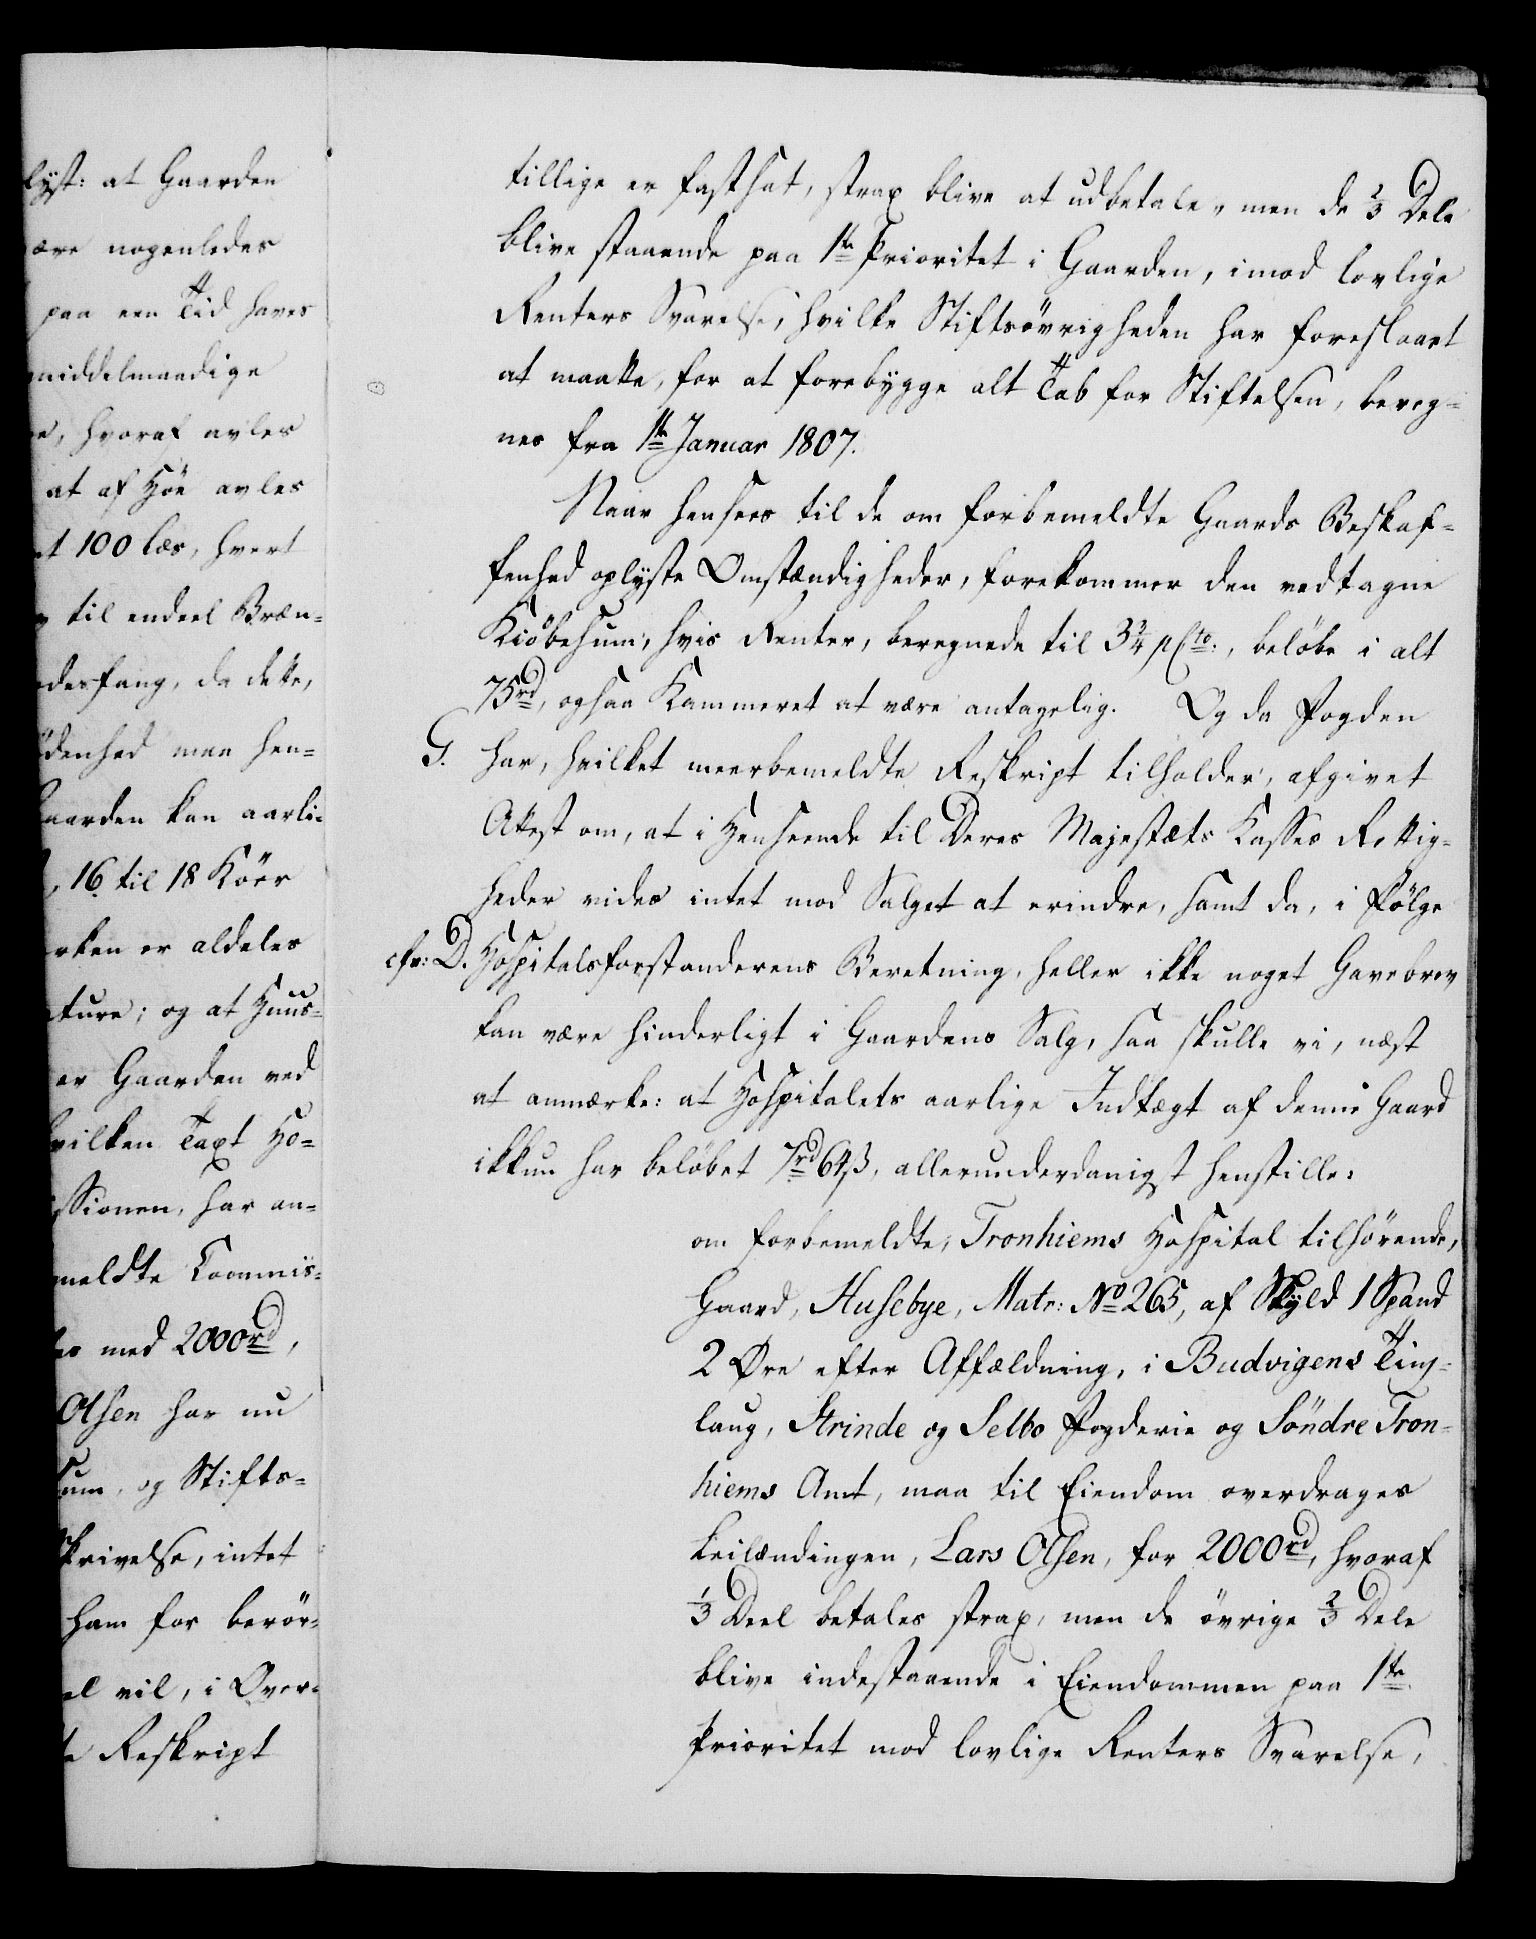 lyst: at Gaarden
være nogenledes
paa een Tid haves
middelmaadige
hvoraf avles
at af Höe avles
100 læs, hvert
til endeel Bræn-
desfang, da dette,
denhed man hen-
Gaarden kan aarli-
16 til 18 Köer
rken er aldeles
ture; og at Huus-
er Gaarden ved
hvilken Taxt Ho-
ssionen, har an-
meldte Commis-
med 2000rd,
Olsen har nu
Sum, og Stifts-
Skrivelse, intet
ham for berör-
el vil, i Over-
te Reskript
tillige er fastsat, strax blive at udbetale, men de 2/3 Dele
blive staaende paa 1te Prioritet i Gaarden, imod lovlige
Renters Svarelse, hvilke Stiftsövrigheden har foreslaaet
at maatte, for at forebygge alt Tab for Stiftelsen, bereg-
nes fra 1te Januar 1807.
Naar hensees til de om forbemeldte Gaards Beskaf-
fenhed oplyste Omstændigheder, forekommer den vedtagne
Kiöbesum, hvis Renter, beregnede til 3 3/4 pCto:, belöbe i alt
75rd, ogsaa Kammeret at være antagelig. Og da Fogden
G. har, hvilket meerbemeldte Reskript tilholder, afgivet
Attest om, at i Henseende til Deres Majestæts Kasses Rettig-
heder vides intet mod Salget at erindre, samt da, i Fölge
cfr: D. Hospitalsforstanderens Beretning, heller ikke noget Gavebrev
kan være hinderligt i Gaardens Salg, saa skulle vi, næst
at anmærke: at Hospitalets aarlige Indtægt af denne Gaard
ikkun har belöbet 7rd 64ß, allerunderdanigst henstille:
om forbemeldte, Tronhiems Hospital tilhörende,
Gaard, Husebye, Matr: No 265, af Skyld 1 Spand
2 Øre efter Affældning, i Budvigens Ting-
laug, Strinde og Selbo Fogderie og Söndre Tron-
hiems Amt, maa til Eiendom overdrages
Leilændingen, Lars Olsen, for 2000rd, hvoraf
1/3 Deel betales strax, men de övrige 2/3 Dele
blive indestaaende i Eiendommen paa 1te
Prioritet mod lovlige Renters Svarelse,